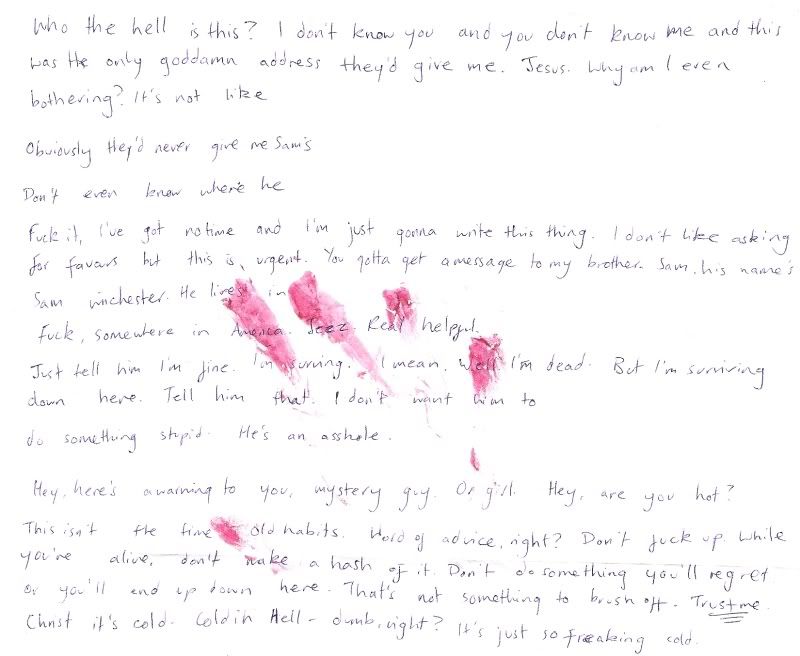 Who the hell is this? I don't know you and you don't know me and this
was the only goddamn address they'd give me. Jesus. Why am I even
bothering? It's not like
Obviously they'd never give me Sam's
Don't even know where he
Fuck it, I've got no time and I'm just gonna write this thing. I don't like asking
for favours but this is urgent. You gotta get a message to my brother. Sam, his name's
Sam Winchester. He lives in
Fuck, somewhere in America. Jeez. Real helpful.
Just tell him I'm fine. I'm surving. I mean, well I'm dead. But I'm surviving
down here. Tell him that. I don't want him to
do something stupid. He's an asshole.
Hey, here's a warning to you, mystery guy. Or girl. Hey, are you hot?
This isn't the time old habits. Word of advice, right? Don't fuck up. While
you're alive, don't make a hash of it. Don't do something you'll regret
or you'll end up down here. That's not something to brush off. Trust me.
Christ it's cold. Cold in Hell - dumb, right? It's just so freaking cold.